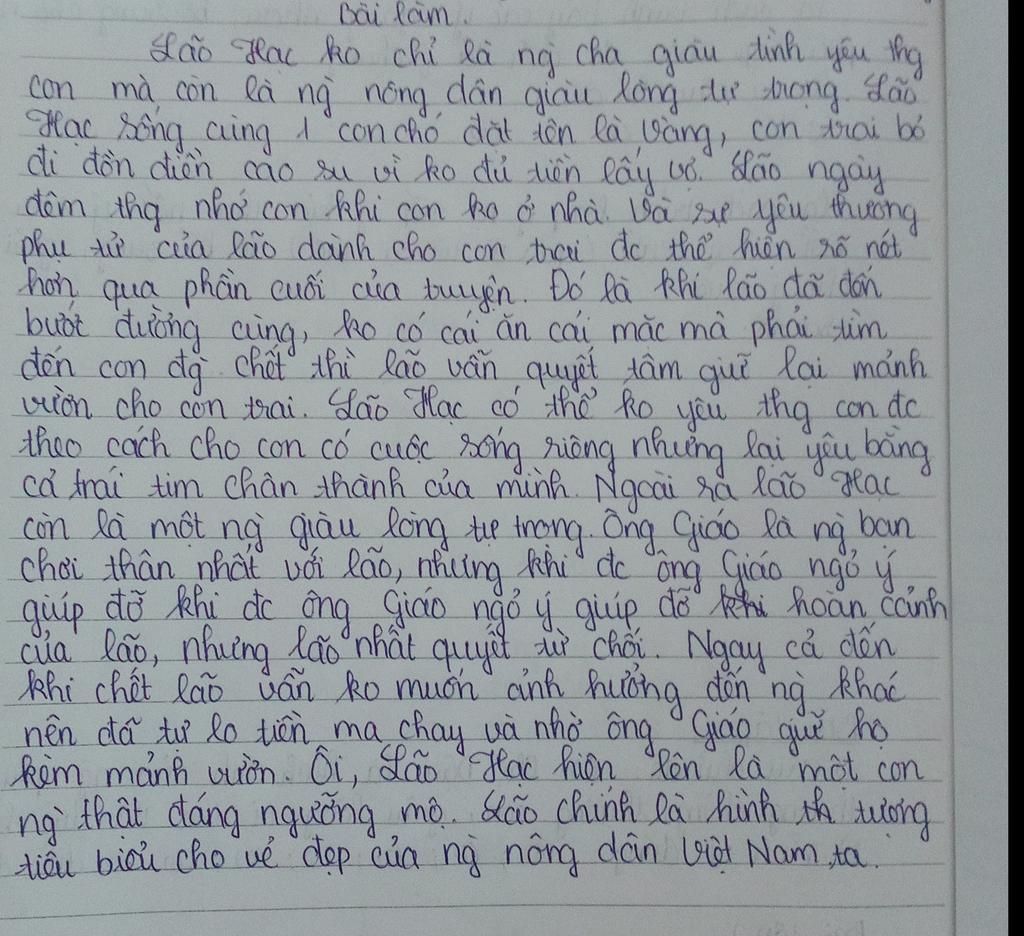 Bài làm.
Lão Hạc ko chỉ là ng cha giàu tình yêu thg
con mà còn là ng nông dân giàu lòng tự trọng. Lão
Hạc sống cùng 1 con chó đặt tên là Vàng, con trai bỏ
đi đồn điền cao su vì ko đủ tiền lấy vợ. Lão ngày
đêm thg nhớ con khi con ko ở nhà. Và sự yêu thương
phụ tử của lão dành cho con trai đc thể hiện rõ nét
hơn qua phần cuối của truyện. Đó là khi lão đã đến
bướt đường cùng, ko có cái ăn cái mặc mà phải tìm
đến con đg chết thì lão vẫn quyết tâm giữ lại mảnh
vườn cho con trai. Lão Hạc có thể ko yêu thg con đc
theo cách cho con có cuộc sống riêng nhưng lại yêu bằng
cả trái tim chân thành của mình. Ngoài ra lão Hạc
còn là một ng giàu lòng tự trọng. Ông Giáo là ng bạn
chơi thân nhất với lão, nhưng khi đc ông Giáo ngỏ ý
giúp đỡ khi đc ông Giáo ngỏ ý giúp đỡ khi hoàn cảnh
của lão, nhưng lão nhất quyết từ chối. Ngay cả đến
khi chết lão vẫn ko muốn ảnh hưởng đến ng khác
nên đã tự lo tiền ma chay và nhờ ông Giáo giữ hộ
kèm mảnh vườn. Ôi, Lão Hạc hiện lên là một con
ng thật đáng ngưỡng mộ. Lão chính là hình th tượng
tiêu biểu cho vẻ đẹp của ng nông dân Việt Nam ta.